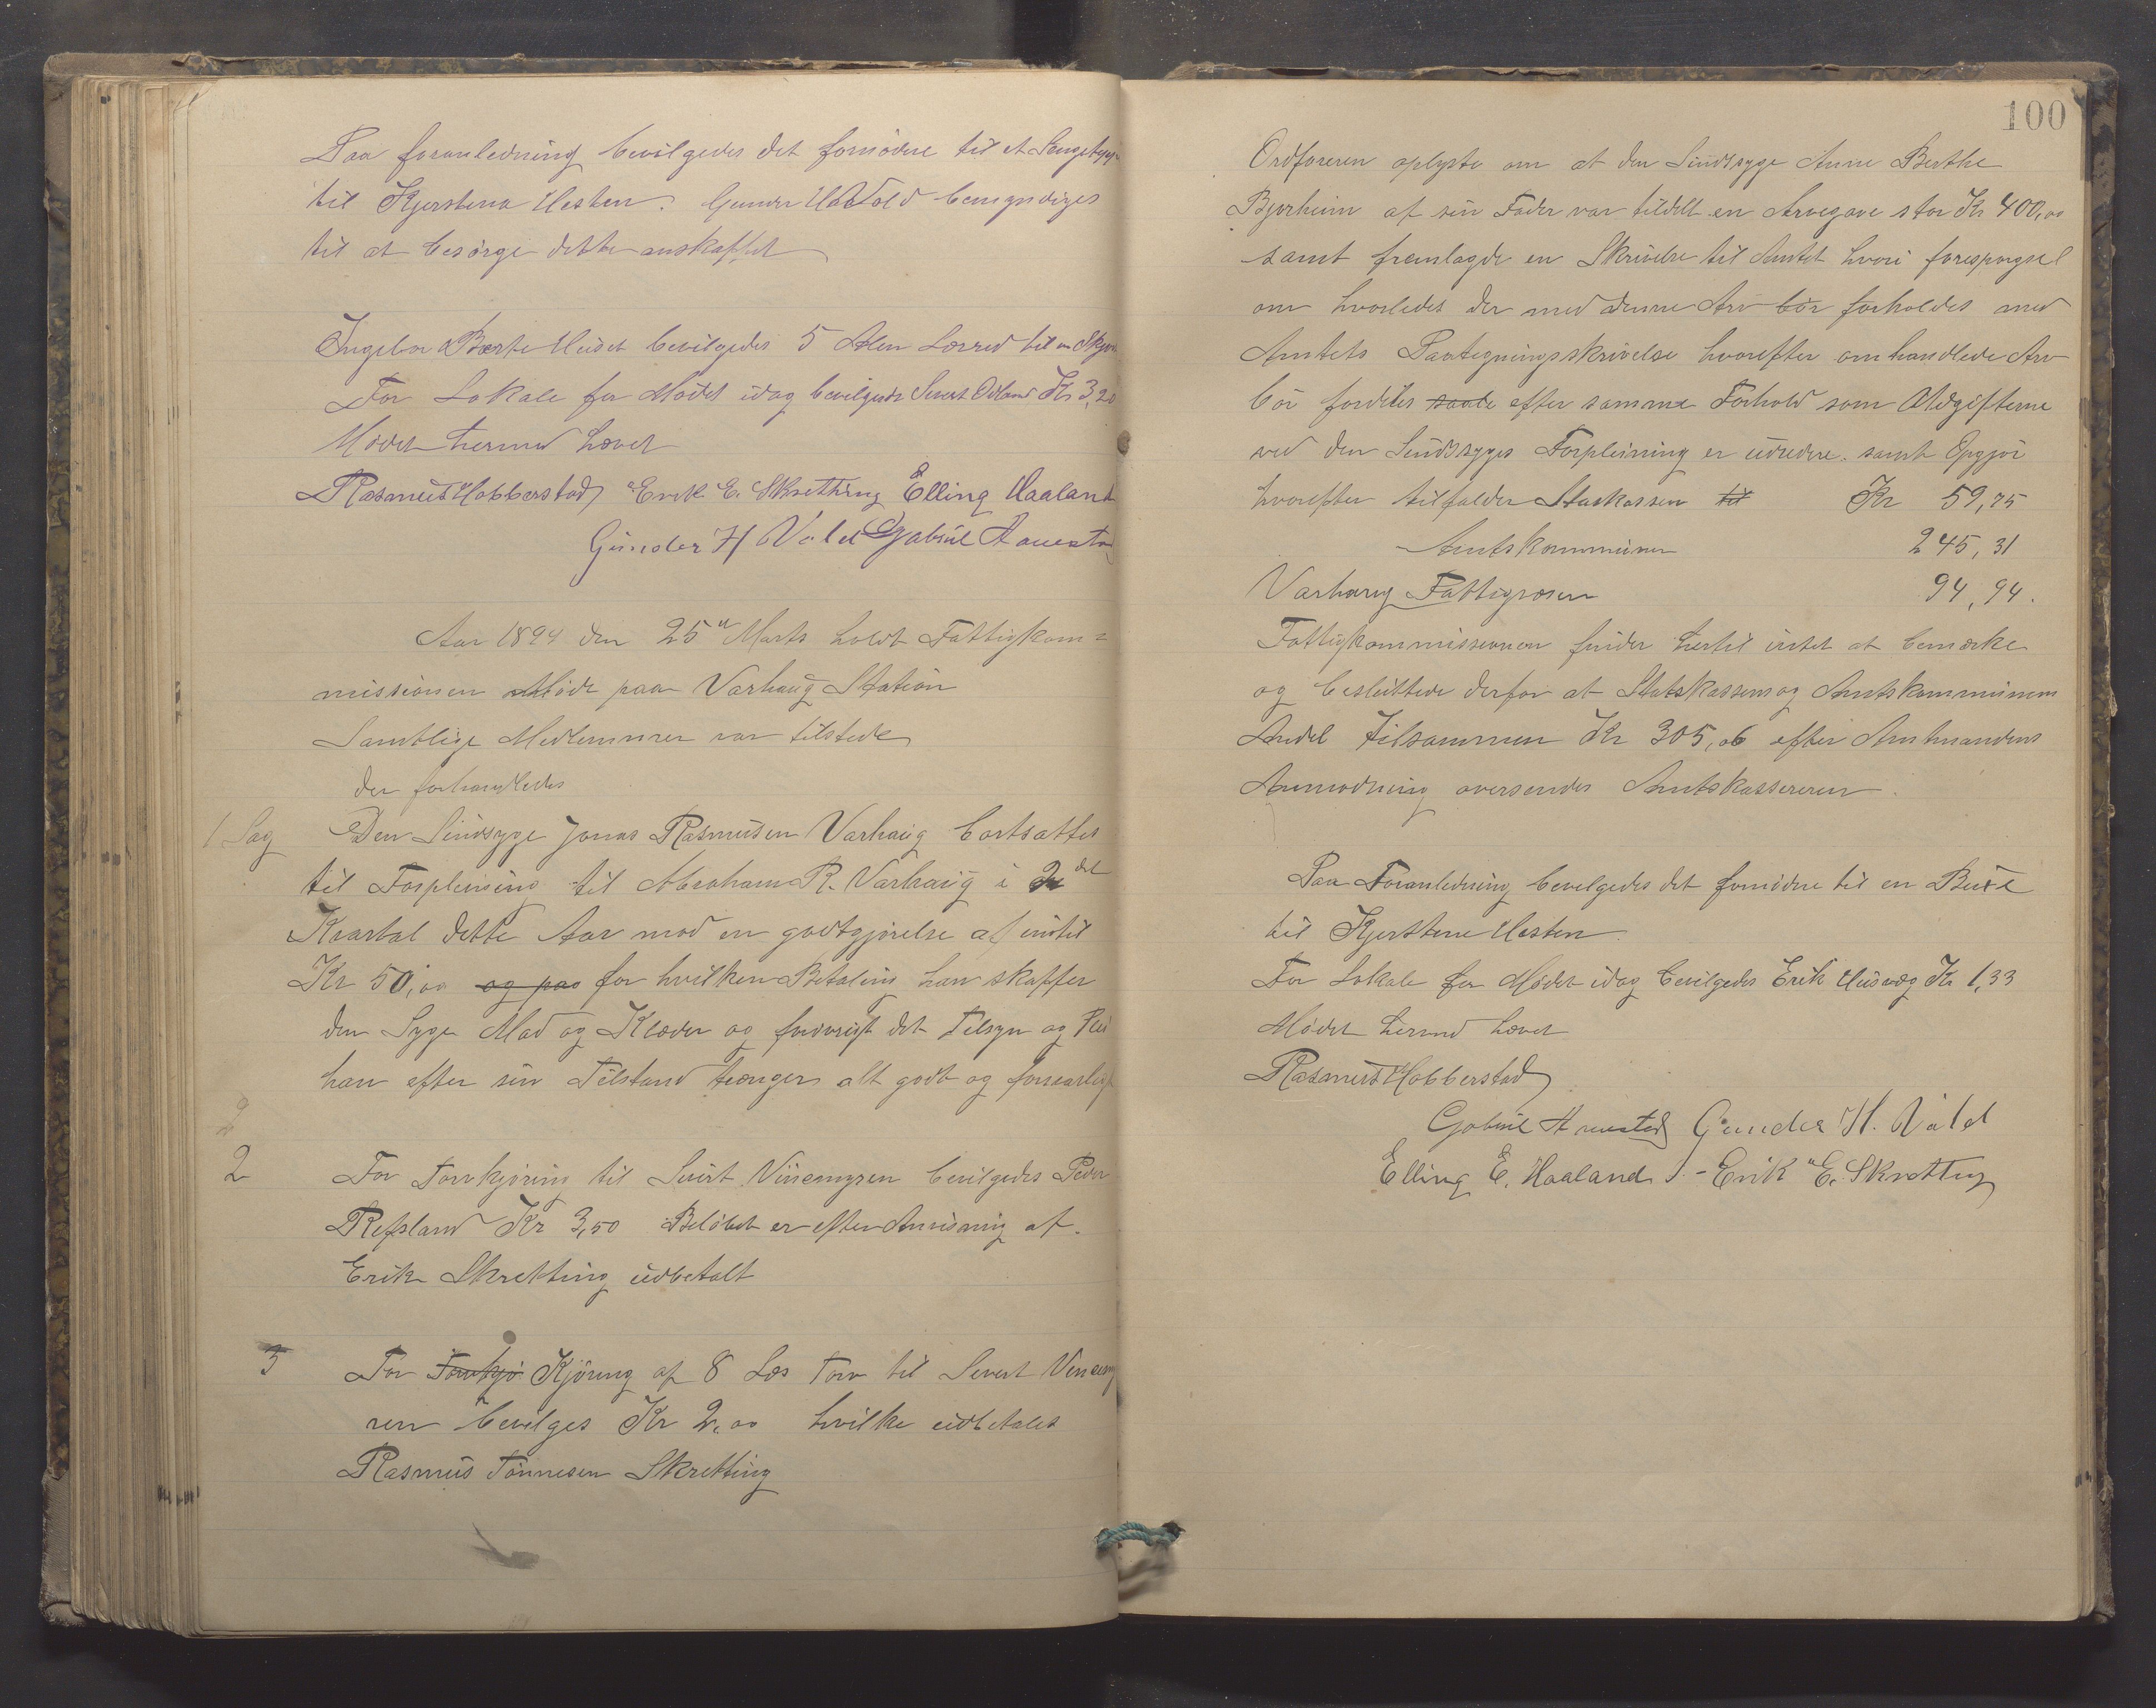 Paa foranledning bevilgedes det fornødne til et Sengetæp
til Kjerstena Hesten. Gunder H. Vold bemyndiges
til at besørge dette anskaffet
Ingebor Berte Huset bevilgedes 5 Alen Lærred til en Skjor
For Lokale for Mødet idag bevilgedes Sivert Odland Kr 3,20
Mødet hermed hævet
Rasmus Hobberstad Erik E. Skretting Elling Haaland
Gunder H Vold Gabriel Auestad
Aar 1894 den 25de Marts holdt Fattigkom=
missionen Møde paa Varhaug Station
Samtlige Medlemmer var tilstede
Der forhandledes
1 Sag Den Sindsyge Jonas Rasmusen Varhaug bortsattes
til Forpleining til Abraham R. Varhaug i 2det
Kvartal dette Aar mod en godtgjørelse af indtil
Kr 50,00 og paa for hvilken Betaling han skaffer
den Syge Mad og Klæder og forøvrigt det Tilsyn og Plei
han efter sin Tilstand trænger alt godt og forsvarligt
2 For Torvkjøring til Sivert Vinemyren bevilgedes Peder
Refsland Kr 3,50 Beløbet er efter Anvisning af
Erik Skretting udbetalt
3 For Torvkjø Kjøring af 8 Læs Torv til Sivert Vinemy
ren bevilges Kr 2,00 hvilke udbetales
Rasmus Tønnesen Skretting
100
Ordføreren oplyste om at den Sindssyge Anne Berthe
Bjorheim af sin Fader var tildelt en Arvegave stor Kr 400,00
samt fremlagde en Skrivelse til Amtet hvori forespørgsel
om hvorledes der med denne Arv bør forholdes med
Amtets Paategningsskrivelse hvorefter omhandlede Arv
bør fordeles saale efter samme Forhold som Udgifterne
ved den Sindssyges Forpleining er udredne. samt Opgjør
hvorefter tilfalder Staskassen til Kr 59,75
Amtskommunen 245,31
Varhaug Fattigvæsen 94,94.
Fattigkommissionen finder hertil intet at bemærke
og besluttede derfor at Statskassens og Amtskommunens
Andel tilsammen Kr 305,06 efter Amtmandens
Anmodning oversendes Amtskassereren.
Paa Foranledning bevilgedes det fornødne til en Buxe
til Kjerstene Hesten.
For Lokale for Mødet idag bevilgedes Erik Husvæg Kr 1,33
Mødet hermed hævet
Rasmus Hobberstad
Gabriel Auestad Gunder H. Vold
Elling E. Haaland - Erik E. Skretting